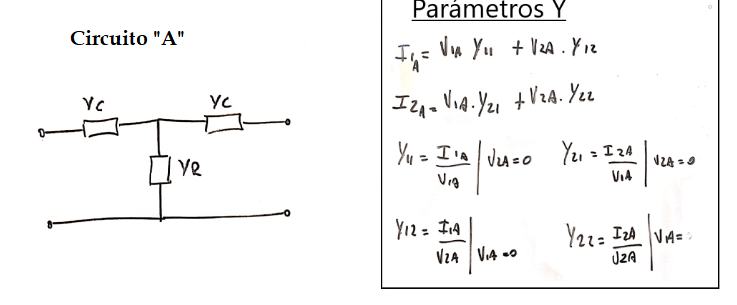 Circuito "A"
Yc
Yc
YR
Parámetros Y
I1A = V1A Y11 + V2A . Y12
I2A = V1A . Y21 + V2A . Y22
Y11 = I1A / V1A | V2A = 0
Y21 = I2A / V1A | V2A = 0
Y12 = I1A / V2A | V1A = 0
Y22 = I2A / V2A | V1A =